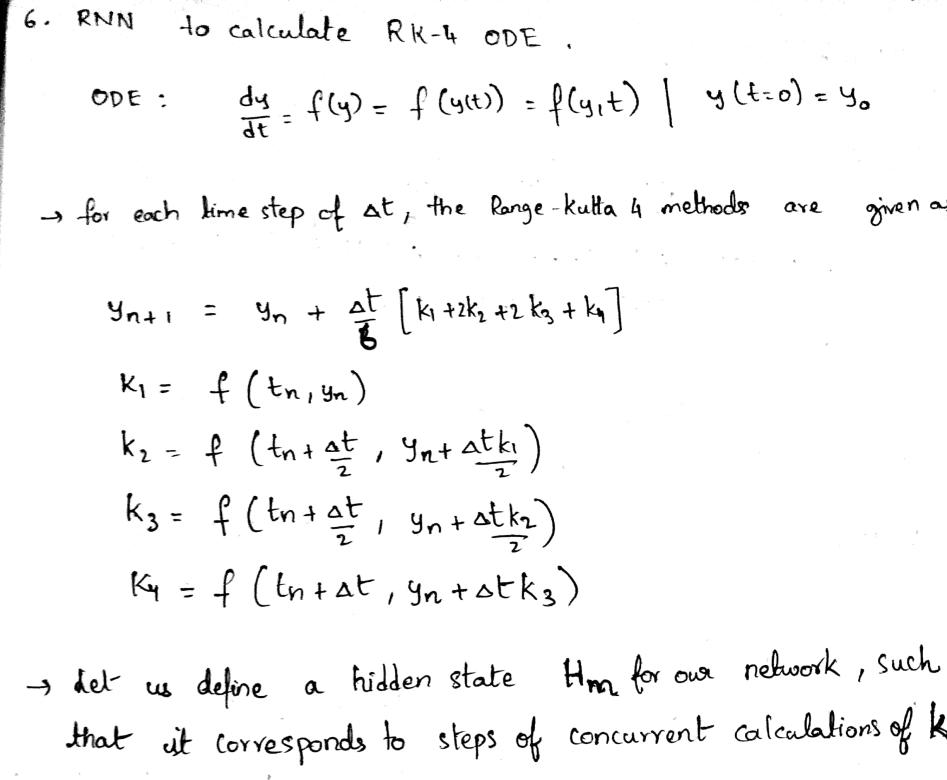 6. RNN to calculate RK-4 ODE .
ODE : dy/dt = f(y) = f(y(t)) = f(y,t) | y(t=0) = y₀
→ for each time step of Δt, the Range-Kutta 4 methods are given as
yₙ₊₁ = yₙ + Δt/6 [k₁ + 2k₂ + 2k₃ + k₄]
K₁ = f (tₙ, yₙ)
k₂ = f (tₙ + Δt/2, yₙ + Δtk₁/2)
K₃ = f (tₙ + Δt/2, yₙ + Δtk₂/2)
K₄ = f (tₙ + Δt, yₙ + Δtk₃)
→ Let us define a hidden state Hₘ for our network, such
that it corresponds to steps of concurrent calculations of k